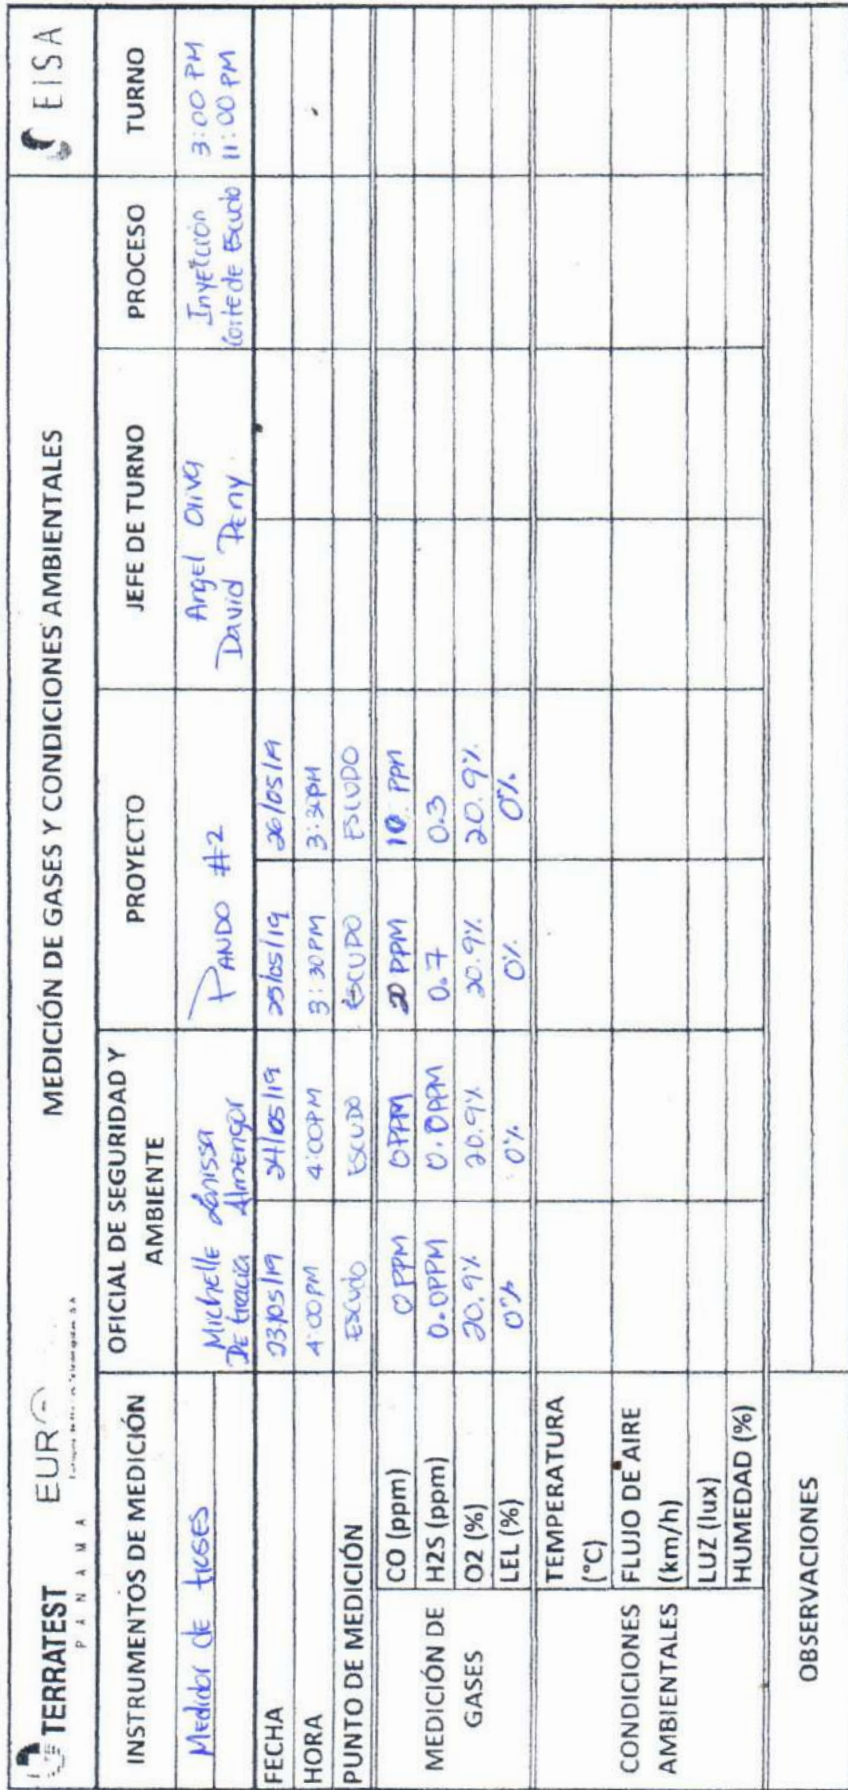 TERRATEST
PANAMA
EUR
MEDICIÓN DE GASES Y CONDICIONES AMBIENTALES
EISA
INSTRUMENTOS DE MEDICIÓN OFICIAL DE SEGURIDAD Y AMBIENTE PROYECTO JEFE DE TURNO PROCESO TURNO
Medidor de Gases
Michelle Larissa
De Gracia Almengor
PANDO #2
Angel Oliva
David
Inyección
Corte de Escudo
3:00 PM
11:00 PM
FECHA 23/05/19 24/05/19 25/05/19 26/05/19
HORA 4:00 PM 4:00PM 3:30 PM 3:30PM
PUNTO DE MEDICIÓN Escudo ESCUDO ESCUDO ESCUDO
MEDICIÓN DE GASES
CO (ppm) 0 PPM 0PPM 20 PPM 10 PPM
H2S (ppm) 0.0PPM 0.0PPM 0.7 0.3
O2 (%) 20.9% 20.9% 20.9% 20.9%
LEL (%) 0% 0% 0% 0%
CONDICIONES AMBIENTALES
TEMPERATURA (°C)
FLUJO DE AIRE (km/h)
LUZ (lux)
HUMEDAD (%)
OBSERVACIONES